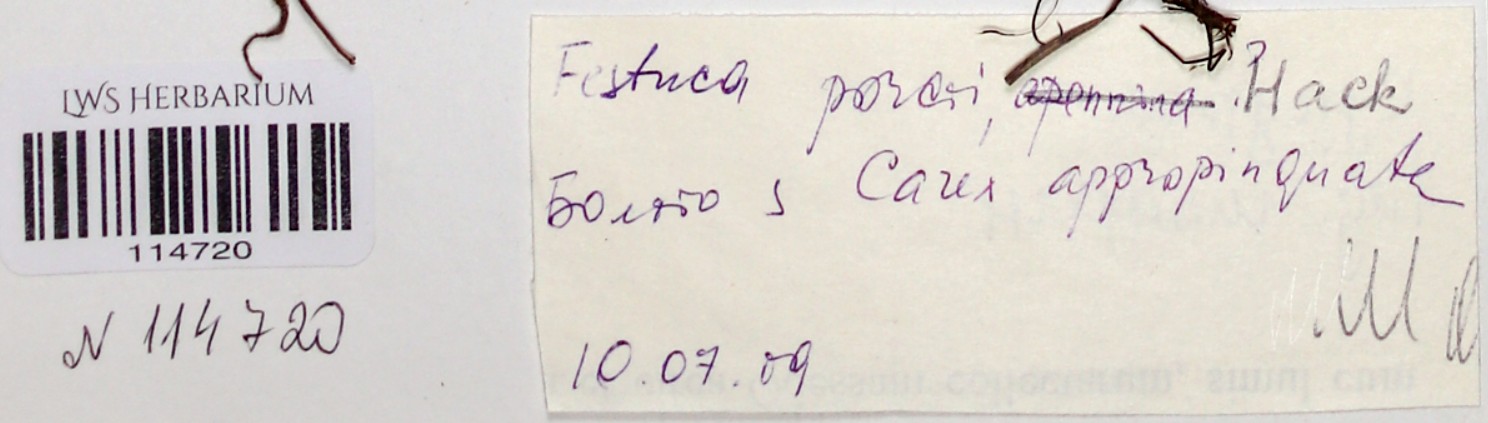 LWS HERBARIUM
114720
N 114720
Festuca porcii, apennina Hack
Болото з Carex appropinquata
10.07.09